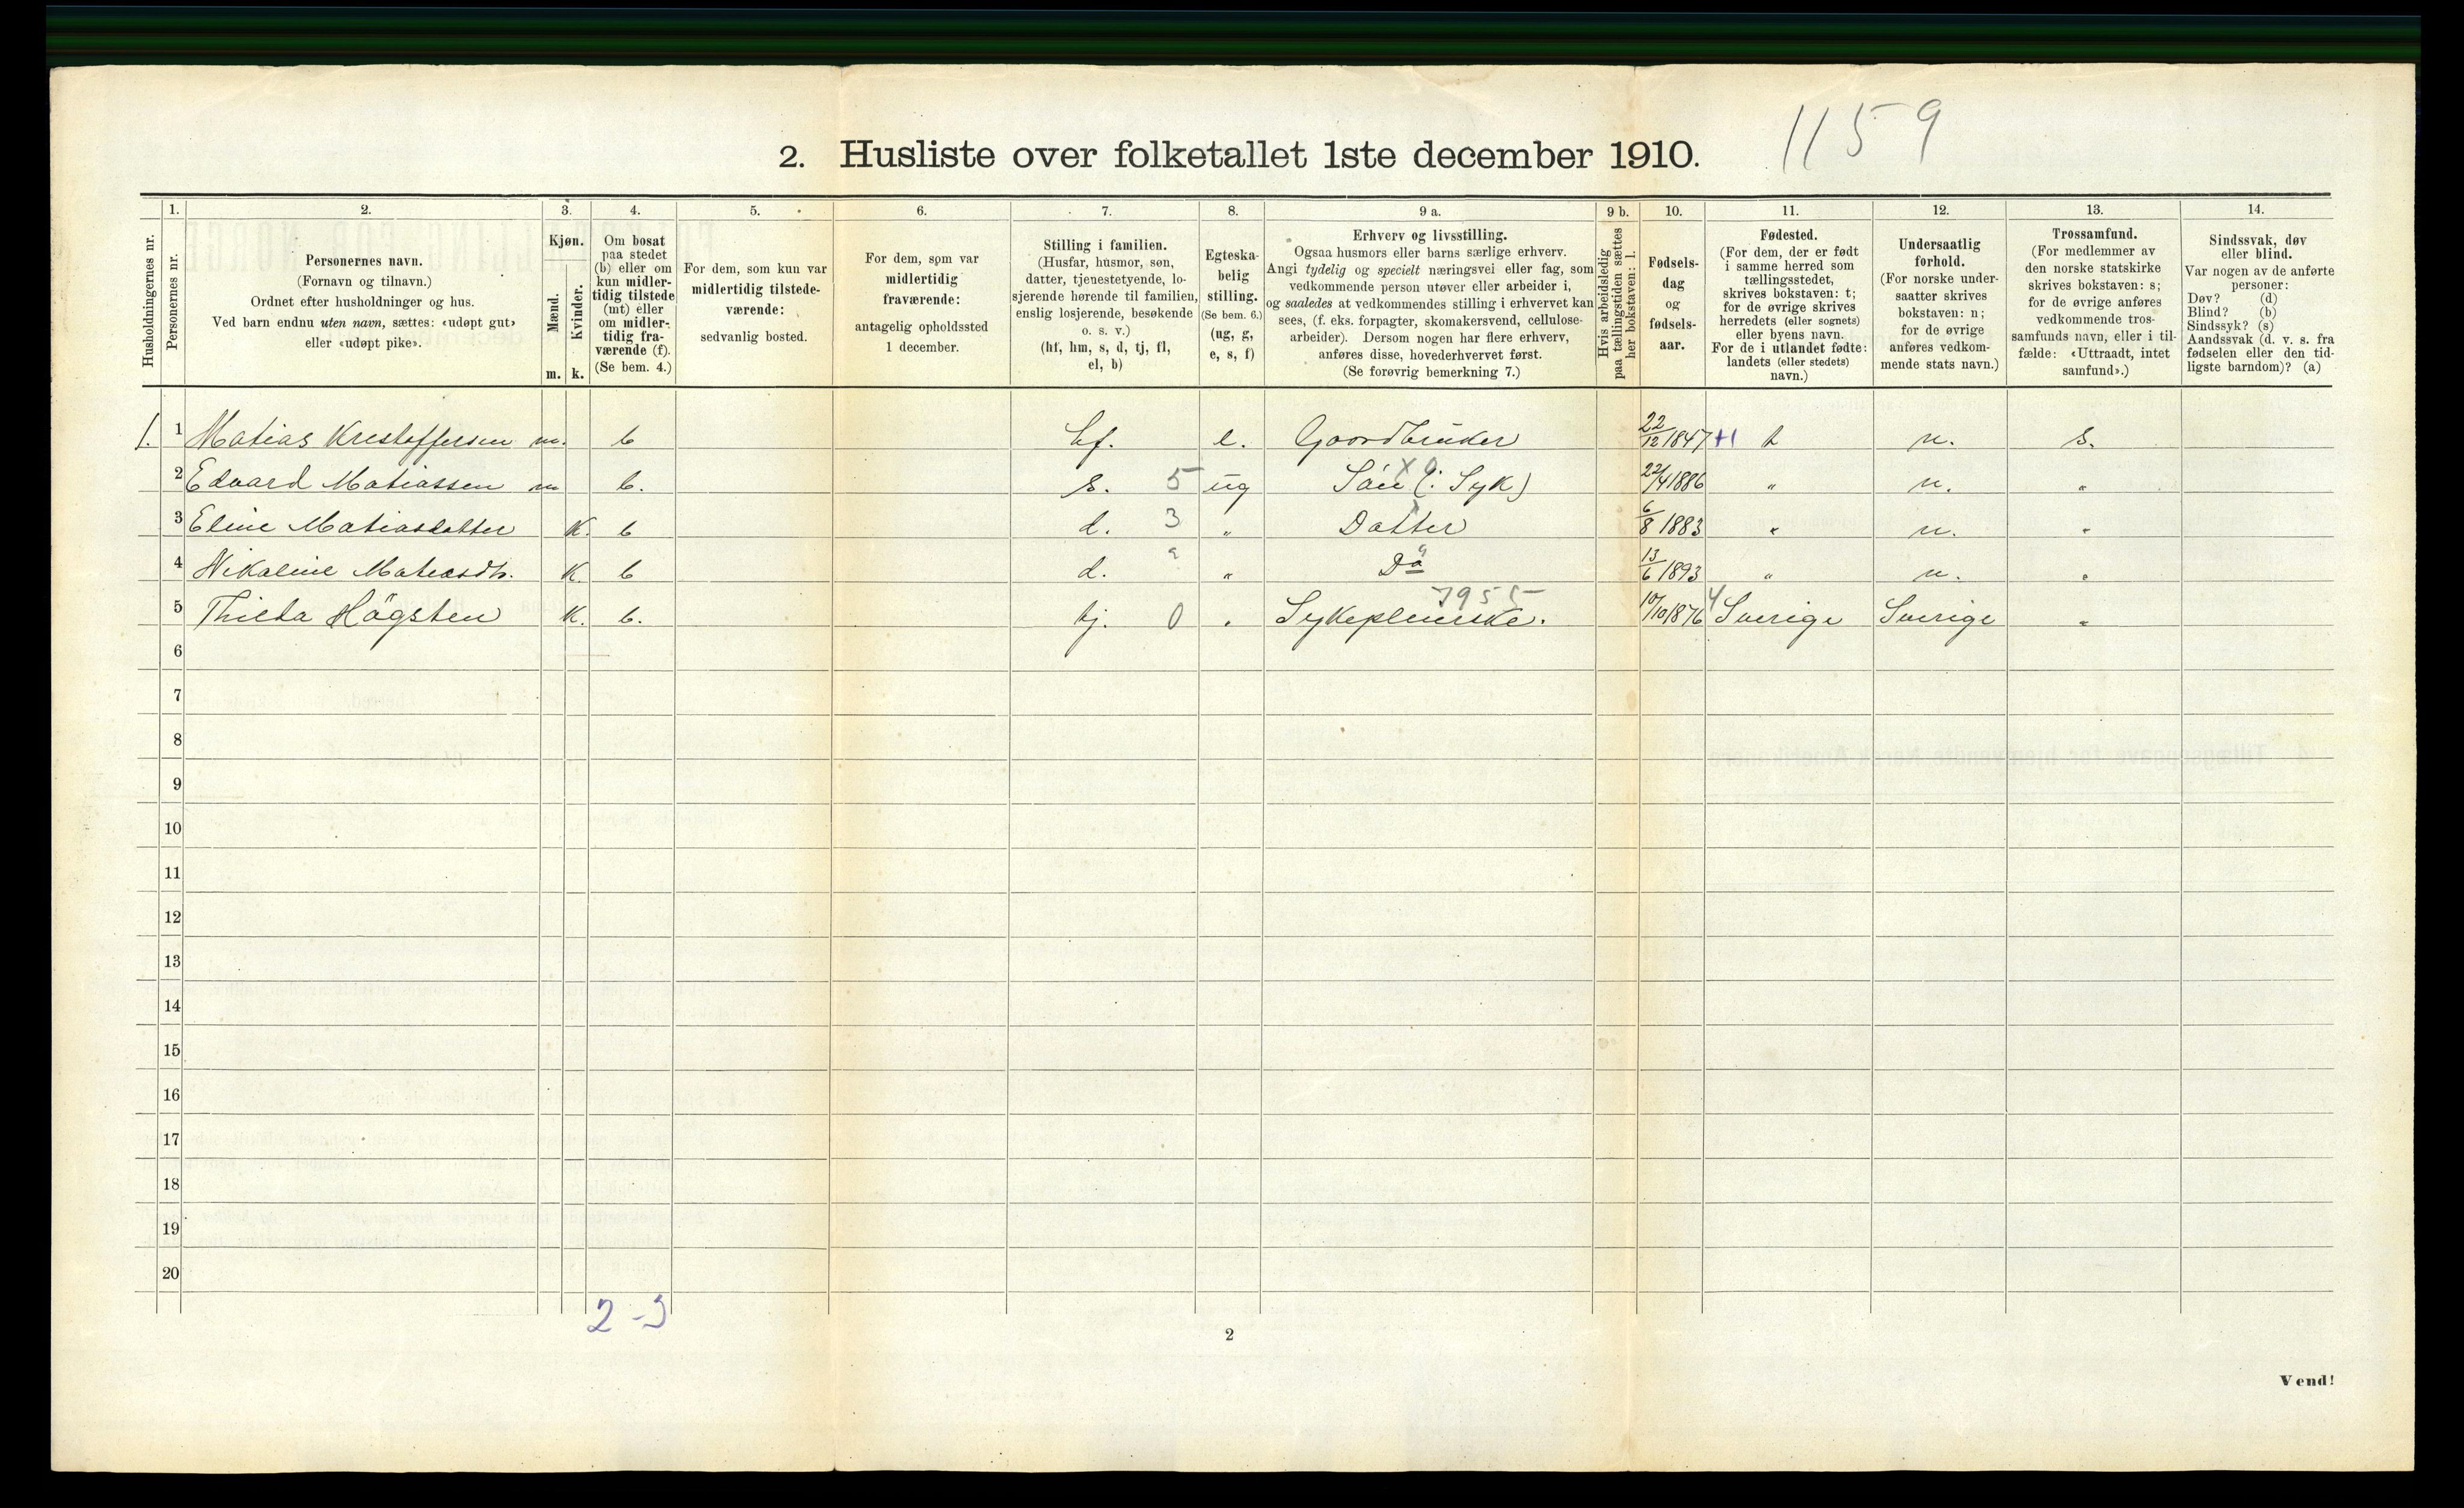 1159
2. Husliste over folketallet 1ste december 1910.
Husholdningernes nr.
1.
Personernes nr.
2.
Personernes navn.
(Fornavn og tilnavn.)
Ordnet efter husholdninger og hus.
Ved barn endnu uten navn, sættes: «udøpt gut»
eller «udøpt pike».
3.
Kjøn.
Mænd.
Kvinder.
m. k.
4.
Om bosat
paa stedet
(b) eller om
kun midler-
tidig tilstede
(mt) eller
om midler-
tidig fra-
værende (f).
(Se bem. 4.)
5.
For dem, som kun var
midlertidig tilstede-
værende:
sedvanlig bosted.
6.
For dem, som var
midlertidig
fraværende:
antagelig opholdssted
1 december.
7.
Stilling i familien.
(Husfar, husmor, søn,
datter, tjenestetyende, lo-
sjerende hørende til familien,
enslig losjerende, besøkende
o. s. v.)
(hf, hm, s, d, tj, fl,
el, b)
8.
Egteska-
belig
stilling.
(Se bem. 6.)
(ug, g,
e, s, f)
9 a.
Erhverv og livsstilling.
Ogsaa husmors eller barns særlige erhverv.
Angi tydelig og specielt næringsvei eller fag, som
vedkommende person utøver eller arbeider i,
og saaledes at vedkommendes stilling i erhvervet kan
sees, (f. eks. forpagter, skomakersvend, cellulose-
arbeider). Dersom nogen har flere erhverv,
anføres disse, hovederhvervet først.
(Se forøvrig bemerkning 7.)
9 b.
Hvis arbeidsledig
paa tællingstiden sættes
her bokstaven: l.
10.
Fødsels-
dag
og
fødsels-
aar.
11.
Fødested.
(For dem, der er født
i samme herred som
tællingsstedet,
skrives bokstaven: t;
for de øvrige skrives
herredets (eller sognets)
eller byens navn.
For de i utlandet fødte:
landets (eller stedets)
navn.)
12.
Undersaatlig
forhold.
(For norske under-
saatter skrives
bokstaven: n;
for de øvrige
anføres vedkom-
mende stats navn.)
13.
Trossamfund.
(For medlemmer av
den norske statskirke
skrives bokstaven: s;
for de øvrige anføres
vedkommende tros-
samfunds navn, eller i til-
fælde: «Uttraadt, intet
samfund».)
14.
Sindssvak, døv
eller blind.
Var nogen av de anførte
personer:
Døv? (d)
Blind? (b)
Sindssyk? (s)
Aandssvak (d. v. s. fra
fødselen eller den tid-
ligste barndom)? (a)
1. 1 Matias Kristoffersen m. b hf. e. Gaardbruker 22/12 1847 +1 t n. s.
2 Edvard Matiassen m b. s. 5 ug Sön (: Syk) 22/4 1886 " n. "
3 Eline Matiasdatter K. b d. 3 " Datter 6/8 1883 " n. "
4 Nikaline Matiasdtr. K. b d. " Do 13/6 1893 " n. "
7955
5 Thilda Högsten K. b. tj. 0 " Sykepleierske. 10/10 1876 4 Sverige Sverige "
6
7
8
9
10
11
12
13
14
15
16
17
18
19
20
2-3
2
Vend!